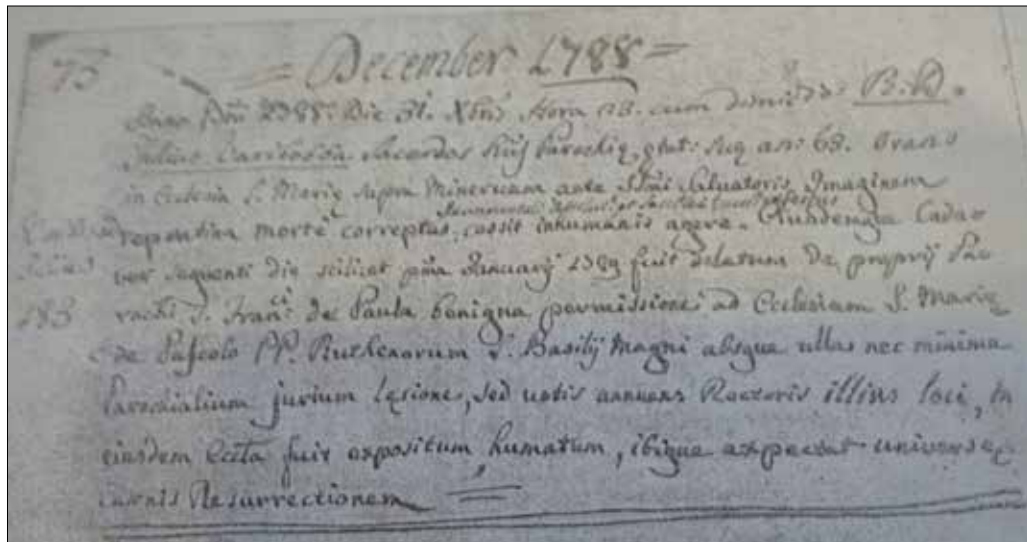 73
= December 1788 =
Anno Dni 1788: Die 31. Xbris Hora 23. cum dimid: B. D.
Julius Sacerdos huj Parochię, ętat: suę an: 68. Orans
in Ecclesia S. Marię supra Minervam ante SSmi Salvatoris Imaginem
Sacramentis
repentina morte correptus, cessit inhumanis agere. Cada
Julius ver sequenti die scilicet pma Januarij 1789 fuit delatum de proprij Pa
183 rochi S. Franci de Paula benigna permissione ad Ecclesiam S. Marię
de Pascolo PP. Ruthenorum S. Basilij Magni absque ullas nec minima
Parochialium jurium lęsione, sed votis annuens Rectoris illius loci, in
eiusdem Eccla fuit expositum, humatum, ibique expectat universę
carnis Resurrectionem